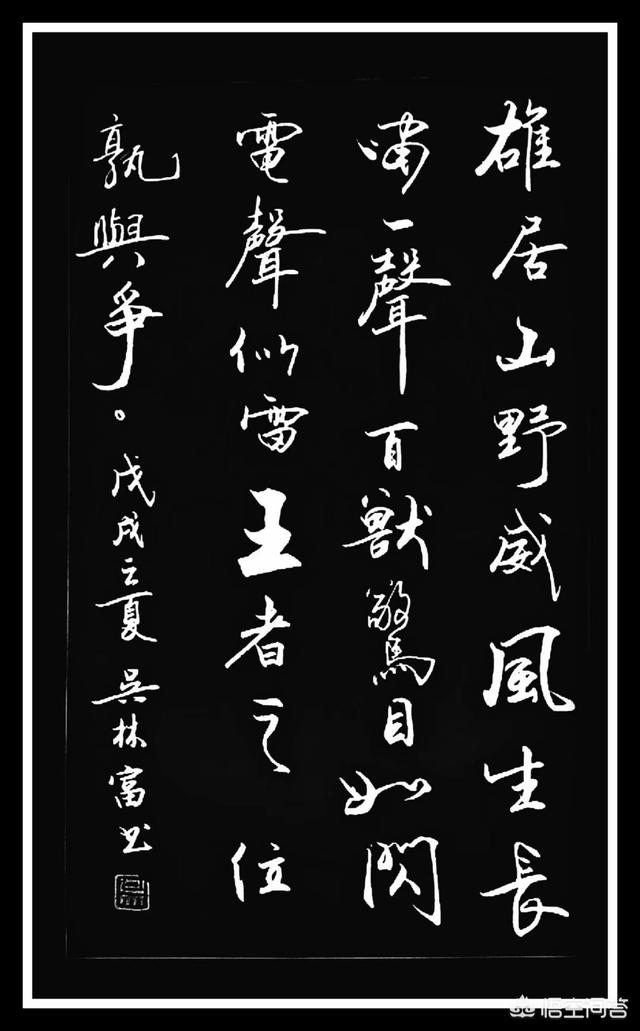 雄居山野威風生長
嘯一聲百獸驚目如閃
電聲似雷王者之位
孰與爭。
戊戌之夏 吳林富书
悟空问答